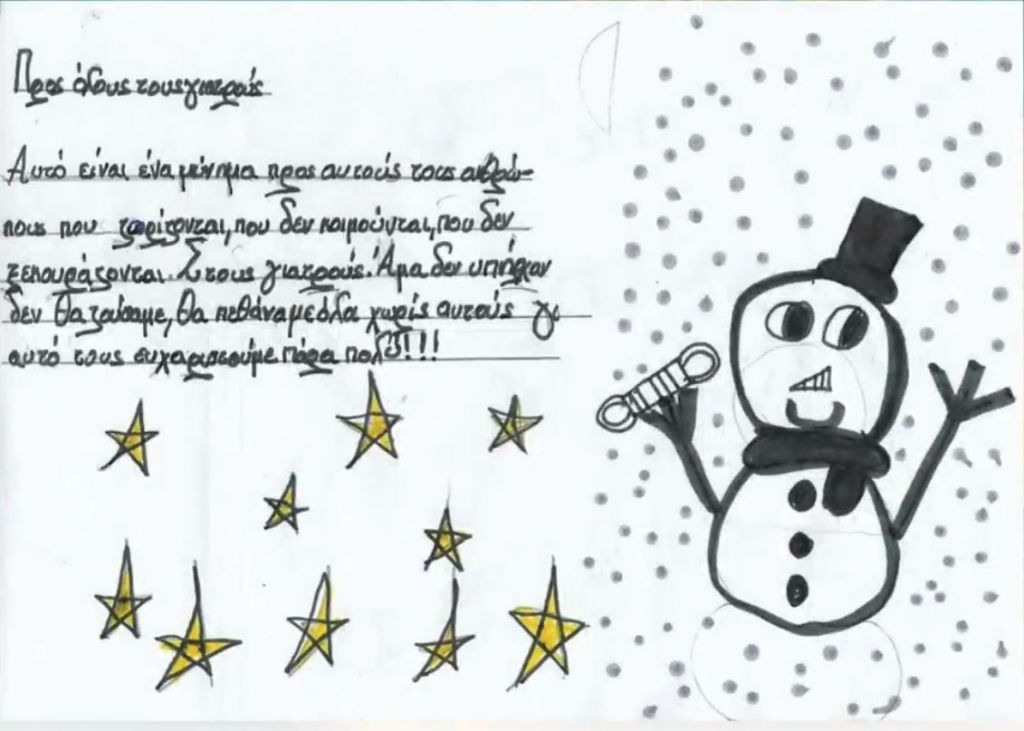 Προς όλους τους γιατρούς
Αυτό είναι ένα μήνημα προς αυτούς τους ανθρώ-
πους που ζορίζονται, που δεν κοιμούνται, που δεν
ξεκουράζονται. Στους γιατρούς! Άμα δεν υπήρχαν
δεν θα ζούσαμε, θα πεθάναμε όλα χωρίς αυτούς γι
αυτό τους ευχαριστούμε πάρα πολύ!!!